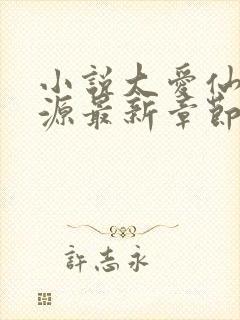 小說太愛仙
源最新章節
許志永